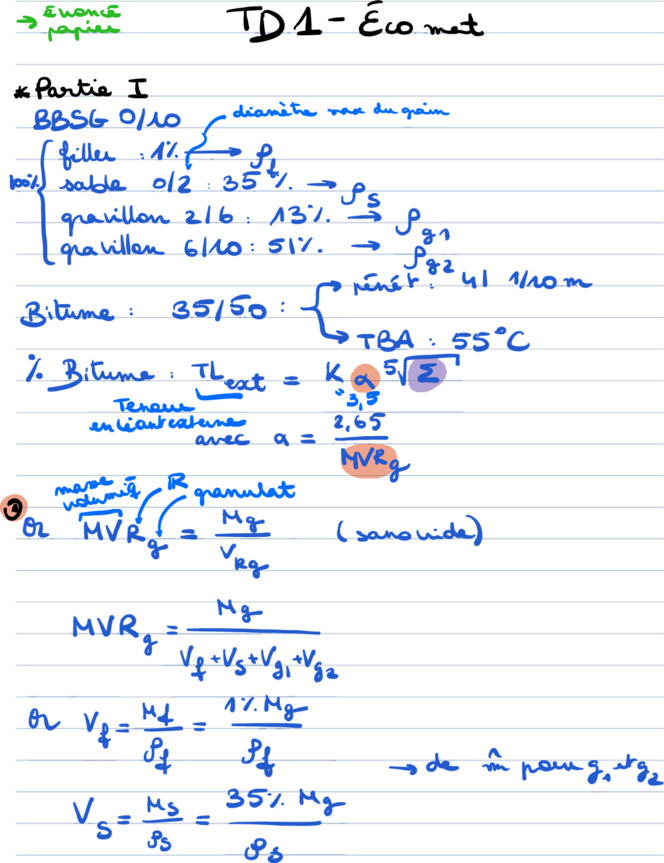 → énoncé papier
TD1 - Éco mat
* Partie I
BBSG 0/10
diamètre max du grain
100%
filler : 1% → ρf
sable 0/2 : 35% → ρs
gravillon 2/6 : 13% → ρg1
gravillon 6/10 : 51% → ρg2
Bitume : 35/50 :
→ pénét : 41 1/10 m
→ TBA : 55°C
% Bitume : TLext = K α ⁵√Σ
"3,5
Teneur en liant externe
avec α = 2,65 / MVRg
masse volumiq
R
granulat
① Or MVRg = Mg / VRg (sans vide)
MVRg = Mg / (Vf + Vs + Vg1 + Vg2)
Or Vf = Mf / ρf = 1% Mg / ρf
→ de m̂ pour g1 et g2
Vs = Ms / ρs = 35% Mg / ρs